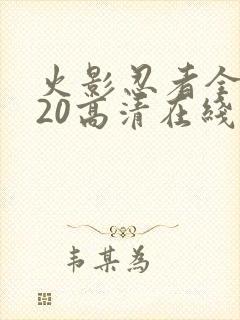 火影忍者全
20高清在线
韦某为